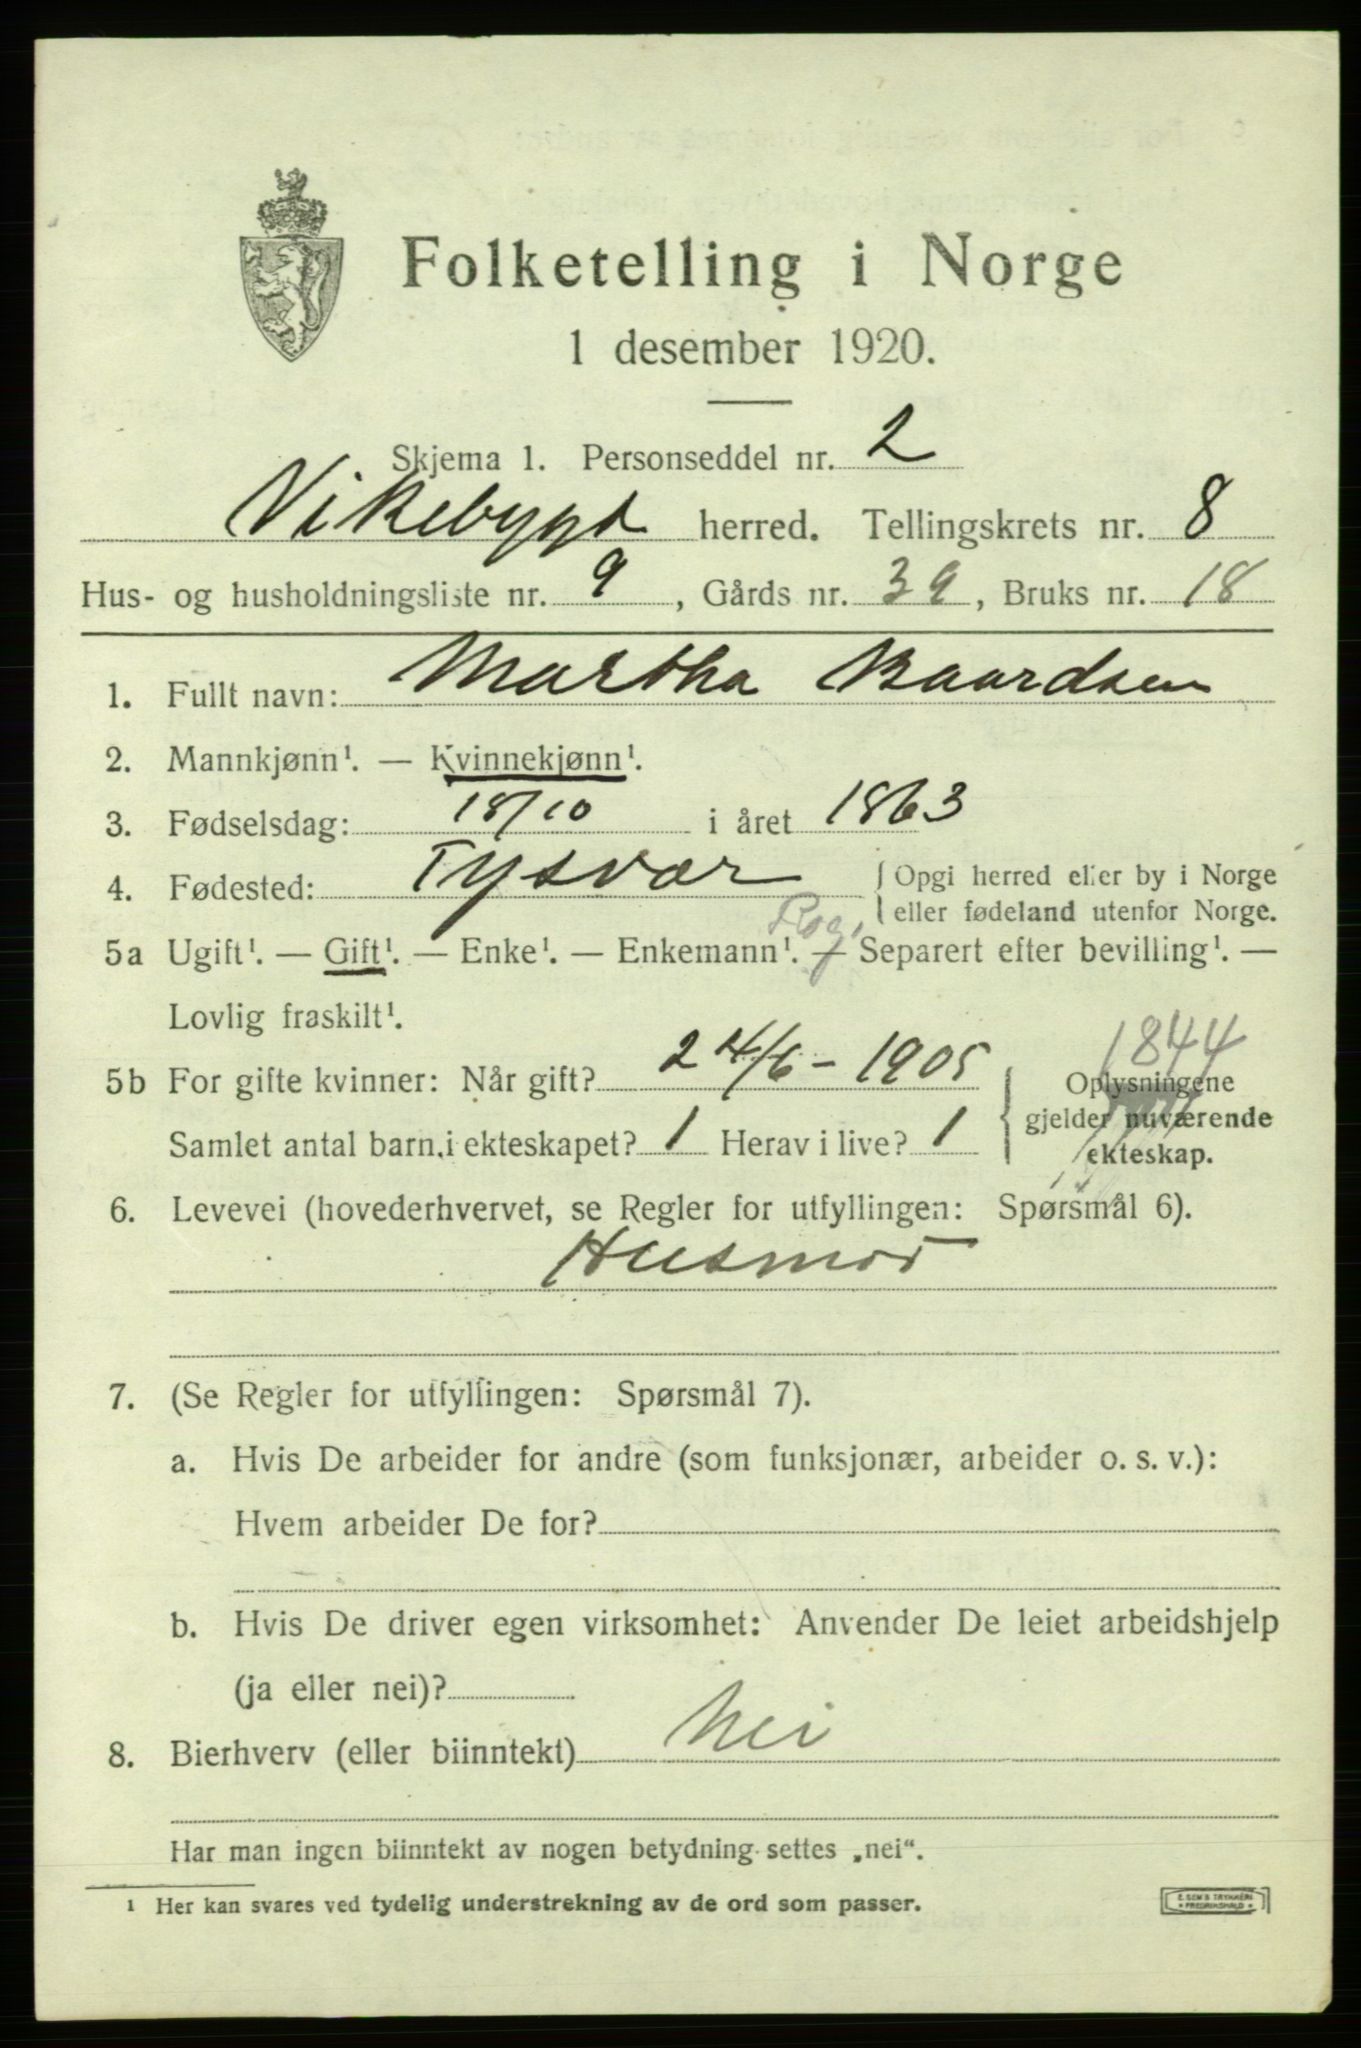 Folketelling i Norge
1 desember 1920.
Skjema 1. Personseddel nr. 2
Vikebygd herred. Tellingskrets nr. 8
Hus- og husholdningsliste nr. 9, Gårds nr. 39, Bruks nr. 18
1. Fullt navn: Martha Baardsen
2. Mannkjønn¹. — Kvinnekjønn¹.
3. Fødselsdag: 18/10 i året 1863
4. Fødested: Tysvær { Opgi herred eller by i Norge
eller fødeland utenfor Norge.
Rog.
5a Ugift¹. — Gift¹. — Enke¹. — Enkemann¹. — Separert efter bevilling¹. —
Lovlig fraskilt¹.
1844
5b For gifte kvinner: Når gift? 24/6 - 1905 { Oplysningene
gjelder nuværende
Samlet antal barn i ekteskapet? 1 Herav i live? 1
ekteskap.
6. Levevei (hovederhvervet, se Regler for utfyllingen: Spørsmål 6).
Husmor
7. (Se Regler for utfyllingen: Spørsmål 7).
a. Hvis De arbeider for andre (som funksjonær, arbeider o. s. v.):
Hvem arbeider De for?
b. Hvis De driver egen virksomhet: Anvender De leiet arbeidshjelp
(ja eller nei)?
8. Bierhverv (eller biinntekt) Nei
Har man ingen biinntekt av nogen betydning settes „nei“.
¹ Her kan svares ved tydelig understrekning av de ord som passer.
E. SEM'S TRYKKERI
• FREDRIKSHALD •